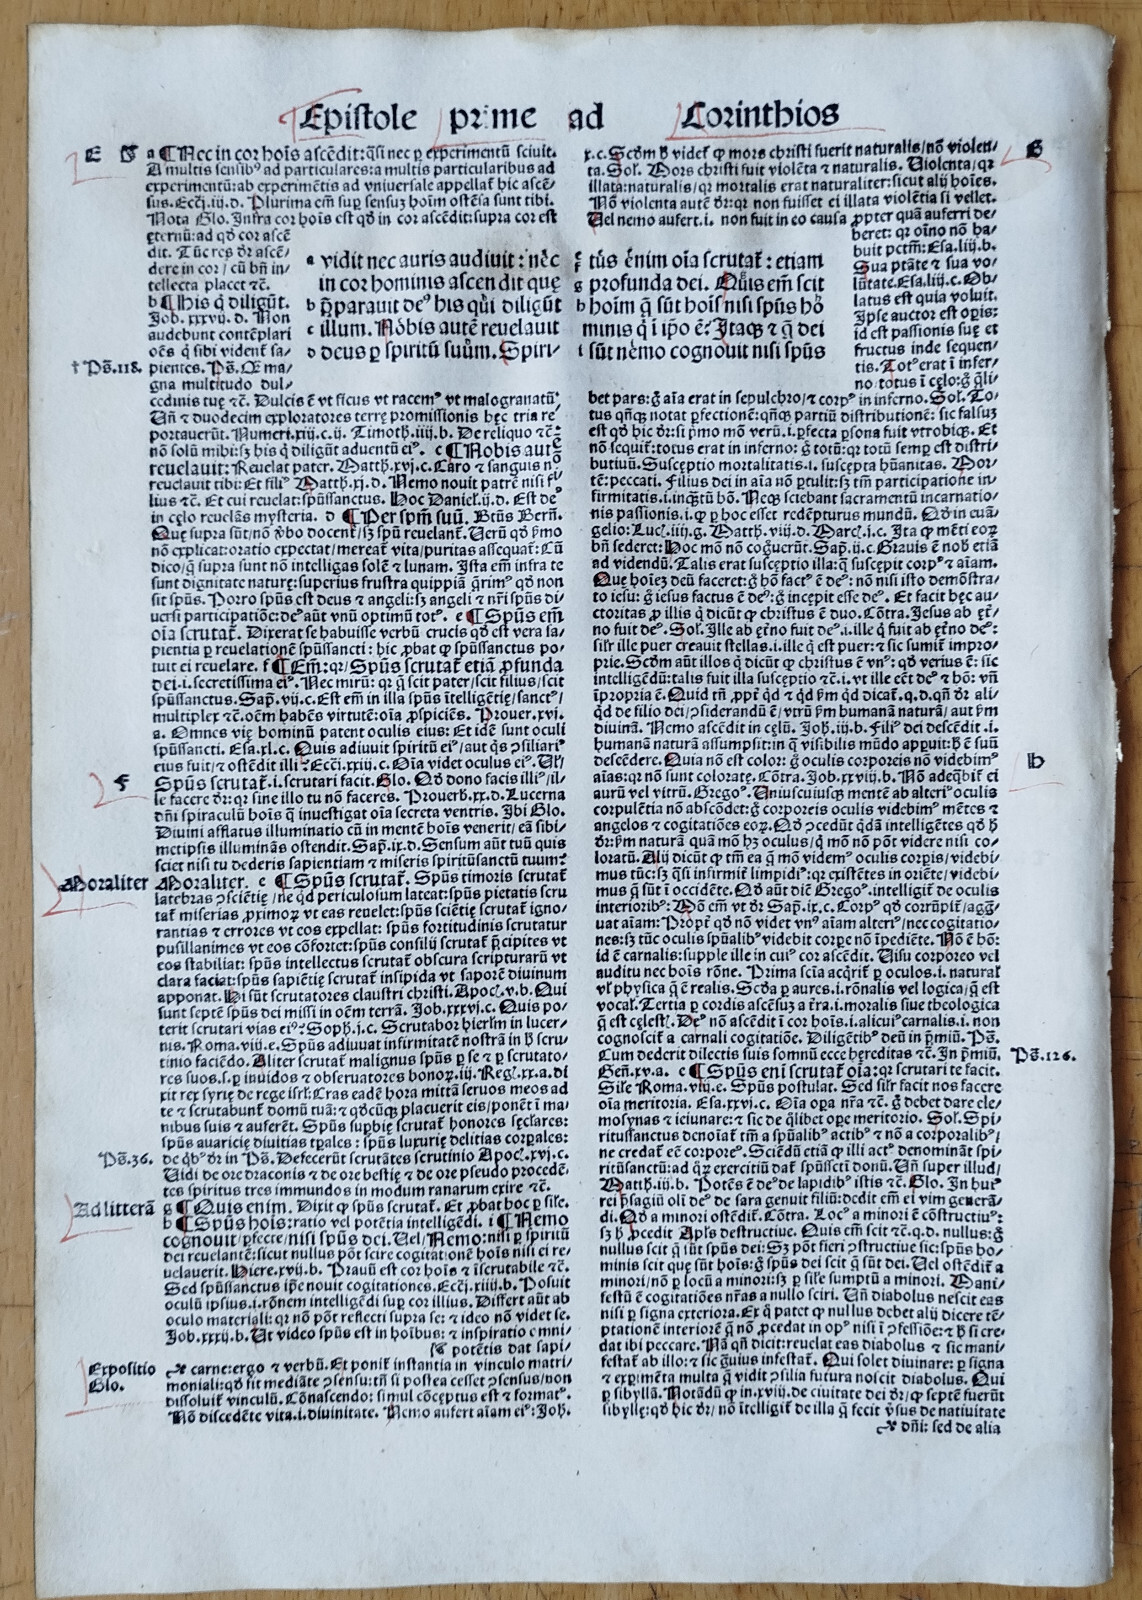 Epistole prime ad Corinthios
E
a ¶ Nec in cor hoīs ascēdit: q̄si nec ꝑ experimentū sciuit.
A multis sensibꝰ ad particulares: a multis particularibus ad
experimentū: ab experimētis ad vniuersale appellat̄ hic ascē/
sus. Ecci̅.iij.d. Plurima em̄ suꝑ sensuȝ hoīm ostēsa sunt tibi.
Nota Glo. Infra cor hoīs est qd̄ in cor ascēdit: supra cor est
ęternū: ad qd̄ cor ascē
dit. Tūc res dr̄ ascē/
dere in cor / cū bn̄ in/
tellecta placet ⁊c̄.
b ¶ His q̄ diligūt.
Job. xxvij.d. Non
audebunt contēplari
oēs q̄ sibi vident̄ sa/
† Ps̄.118. pientes. Ps̄. Q̄ ma/
gna multitudo dul/
cedinis tuę ⁊c̄. Dulcis ē vt ficus vt racemꝰ vt malogranatū.
Un̄ ⁊ duodecim exploratores terrę promissionis hęc tria re/
portauerūt. Numeri.xiij.c.ij. Timoth.iiij.b. De reliquo ⁊c̄.
nō solū mihi: sȝ his q̄ diligūt aduentū eiꝰ. c ¶ Nobis autē
reuelauit: Reuelat pater. Matth.xvj.c. Caro ⁊ sanguis nō
reuelauit tibi: Et filiꝰ Matth.xj.d. Nemo nouit patrē nisi fi/
lius ⁊c̄. Et cui reuelat: spūssanctus. Hoc Daniel.ij.d. Est deꝰ
in cęlo reuelās mysteria. d ¶ Per spm̄ suū. Btūs Bern̄.
Que supra sūt / nō v̄bo docent / sȝ spū reuelant̄. Uerū qd̄ ꝑmo
nō explicat: oratio expectat / mereat̄ vita / puritas assequat̄: Cū
dico / q̄ supra sunt nō intelligas solē ⁊ lunam. Ista em̄ infra te
sunt dignitate naturę: superius frustra quippiā q̄rimꝰ qd̄ non
sit spūs. Porro spūs est deus ⁊ angeli: sȝ angeli ⁊ nr̄i spūs di/
uersi participatiōe: deꝰ aūt vnū optimū totꝰ. e ¶ Spūs em̄
oīa scrutat̄. Dixerat se habuisse verbū crucis qd̄ est vera sa/
pientia ꝑ reuelationē spūssancti: hic ꝓbat ꝙ spūssanctus po/
tuit ei reuelare. f ¶ Em̄: qr / Spūs scrutat̄ etiā ꝓfunda
dei.i. secretissima eiꝰ. Nec mirū: qr q̄ scit pater / scit filius / scit
spūssanctus. Sap̄.vij.c. Est em̄ in illa spūs ītelligētię / sanctꝰ /
multiplex ⁊c̄. oēm habēs virtutē: oīa ꝓspiciēs. Prouer.xvj.
a. Omnes vię hominū patent oculis eius. Et idē sunt oculi
spūssancti. Esa.xl.c. Quis adiuuit spiritū eiꝰ / aut q̄s ↄsiliariꝰ
eius fuit / ⁊ ostēdit illi? Ecci̅.xxiij.c. Oīa videt oculus eiꝰ. Ul̄
F
Spūs scrutat̄.i. scrutari facit. Glo. Qd̄ dono facis illiꝰ / il/
le facere dr̄: qr sine illo tu nō faceres. Prouerb.xx.d. Lucerna
dn̄i spiraculū hoīs q̄ inuestigat oīa secreta ventris. Ibi Glo.
Diuini afflatus illuminatio cū in mentē hoīs venerit / eā sibi/
metipsis illuminās ostendit. Sap̄.ix.d. Sensum aūt tuū quis
sciet nisi tu dederis sapientiam ⁊ miseris spiritūsanctū tuum?
Moraliter Moraliter. e ¶ Spūs scrutat̄. Spūs timoris scrutat̄
latebras ↄsciētię / ne qd̄ periculosum lateat: spūs pietatis scru
tat̄ miserias ꝓximoꝝ vt eas reuelet: spūs sciētię scrutat̄ igno/
rantias ⁊ errores vt eos expellat: spūs fortitudinis scrutatur
pusillanimes vt eos cōfortet: spūs consilij scrutat̄ p̄cipites vt
eos stabiliat: spūs intellectus scrutat̄ obscura scripturarū vt
clara faciat: spūs sapiētię scrutat̄ insipida vt saporē diuinum
apponat. Hi sūt scrutatores claustri christi. Apoc̄.v.b. Qui
sunt septē spūs dei missi in oēm terrā. Job.xxxvj.c. Quis po/
terit scrutari vias eiꝰ? Soph.j.c. Scrutabor hierl̄m in lucer/
nis. Roma.viij.e. Spūs adiuuat infirmitatē nostrā in h̄ scru
tinio faciēdo. Aliter scrutat̄ malignus spūs ꝑ se ⁊ ꝑ scrutato/
res suos.s. ꝑ inuidos ⁊ obseruatores bonoꝝ.iij. Reg̅.xx.a. di
xit rex syrię de rege isrl̄: Cras eadē hora mittā seruos meos ad
te ⁊ scrutabunt̄ domū tuā: ⁊ qd̄cūqȝ placuerit eis / ponēt ī ma/
nibus suis ⁊ auferēt. Spūs supbię scrutat̄ honores sęclares:
spūs auaricię diuitias tp̄ales: spūs luxurię delitias corꝑales:
Ps̄.36. de qbꝰ dr̄ in Ps̄. Defecerūt scrutātes scrutinio Apoc̄.xvj.c.
Uidi de ore draconis ⁊ de ore bestię ⁊ de ore pseudo procedē/
tes spiritus tres immundos in modum ranarum exire ⁊c̄.
Ad litterā g ¶ Quis enim. Dixit ꝙ spūs scrutat̄. Et ꝓbat hoc ꝑ sīle.
h ¶ Spūs hoīs: ratio vel potētia intelligēdi. i ¶ Nemo
cognouit / ꝑfecte / nisi spūs dei. Uel / Nemo: nisi ꝑ spiritū
dei reuelantē: sicut nullus pōt scire cogitationē hoīs nisi ei re/
uelauerit. Hiere.xvij.b. Prauū est cor hoīs ⁊ īscrutabile ⁊c̄.
Sed spūssanctus ip̄e nouit cogitationes. Ecci̅.xiiij.b. Posuit
oculū ipsius.i. rōnem intelligēdi suꝑ cor illius. Differt aūt ab
oculo materiali: qr nō pōt reflecti supra se: ⁊ ideo nō videt se.
Job.xxxij.b. Ut video spūs est in hoībus: ⁊ inspiratio omni/
potētis dat sapi/
Expositio
Glo.
carne: ergo ⁊ verbū. Et ponit̄ instantia in vinculo matri/
moniali: qd̄ fit mediāte ↄsensu: tn̄ si postea cesset ↄsensus / non
dissoluit̄ vinculū. Cōnascendo: simul cōceptus est ⁊ formatꝰ.
Nō discedēte vita.i. diuinitate. Nemo aufert aīam eiꝰ: Joh.
a vidit nec auris audiuit: nec
in cor hominis ascendit que
b p̄parauit deꝰ his qui diligūt
c illum. Nobis autē reuelauit
d deus ꝑ spiritū suum. Spiri-
tus enim oīa scrutat̄: etiam
profunda dei. Quis em̄ scit
hoim q̄ sūt hois nisi spūs ho
minis q̄ ī ipo ē? Itaqȝ ⁊ q̄ dei
i sūt nemo cognouit nisi spūs
G
x.c. Scd̄m h̄ videt̄ ꝙ mors christi fuerit naturalis / nō violen/
ta. Sol̄. Mors christi fuit violēta ⁊ naturalis. Uiolenta / qr
illata: naturalis / qr mortalis erat naturaliter: sicut alij hoīes.
Nō violenta autē dr̄: qr non fuisset ei illata violētia si vellet.
Uel nemo aufert.i. non fuit in eo causa ꝓpter quā auferri de/
beret: qr oīno nō ha/
buit pctm̄: Esa.liij.b.
Sua ptāte ⁊ sua vo/
lūtate. Esa.liij.c. Ob/
latus est quia voluit.
Ipse auctor est oꝑis:
id est passionis suę et
fructus inde sequen/
tis. Totꝰ erat ī infer/
no: totus ī cęlo: ḡ q̄li/
bet pars: ḡ aīa erat in sepulchro / ⁊ corpꝰ in inferno. Sol̄. To/
tus qn̄qȝ notat ꝑfectionē: qn̄qȝ partiū distributionē: sic falsuȝ
est qd̄ hic dr̄: si p̄mo mō verū.i. ꝑfecta ꝑsona fuit vtrobiqȝ. Et
nō sequit̄: totus erat in inferno: ḡ totū: qr totū semꝑ est distri/
butiuū. Susceptio mortalitatis.i. suscepta hūanitas. Mor/
tē: peccati. Filius dei in aīa nō ꝑtulit: sȝ tm̄ participatione in/
firmitatis.i. inqȝtū hō. Neqȝ sciebant sacramentū incarnatio/
nis passionis.i. ꝙ ꝑ hoc esset redēpturus mundū. Qd̄ in euā/
gelio: Luc̄.iiij.g. Matth.viij.d. Marc̄.j.c. Ita ꝙ mēti eoꝝ
bn̄ sederet: Hoc mō nō cog̅uerūt. Sap̄.ij.c. Grauis ē nob̄ etiā
ad videndū. Talis erat susceptio illa: q̄ suscepit corpꝰ ⁊ aīam.
Que hoīeȝ deū faceret: ḡ hō factꝰ ē deꝰ: nō nisi isto demōstra/
to iesu: ḡ iesus factus ē deꝰ: ḡ incepit esse deꝰ. Et facit hęc au/
ctoritas ꝓ illis q̄ dicūt ꝙ christus ē duo. Cōtra. Jesus ab ęt̄/
no fuit deꝰ. Sol̄. Ille ab ęt̄no fuit deꝰ.i. ille q̄ fuit ab ęt̄no deꝰ:
sil̄r ille puer creauit stellas.i. ille q̄ est puer: ⁊ sic sumit̄ impro/
prie. Scd̄m aūt illos q̄ dicūt ꝙ christus ē vnꝰ: qd̄ verius ē: sic
intelligēdū: talis fuit illa susceptio ⁊c̄.i. vt ille eēt deꝰ ⁊ hō: vn̄
īpropria ē. Quid tn̄ ꝓpt̄ qd̄ ⁊ qd̄ p̄m qd̄ dicat̄. q.d. qn̄ dr̄ ali/
q̄d de filio dei / ↄsiderandū ē / vtrū p̄m humanā naturā / aut p̄m
diuinā. Nemo ascēdit in cęlū. Joh.iij.b. Filiꝰ dei descēdit.i.
humanā naturā assumpsit: in q̄ visibilis mūdo apꝑuit: h̄ ē suū
H
descēdere. Quia nō est color: ḡ oculis corporeis nō videbimꝰ
aīas: qr nō sunt coloratę. Cōtra. Job.xxviij.b. Nō adeq̄bit̄ ei
aurū vel vitrū. Gregoꝰ. Uniuscuiusqȝ mentē ab alteriꝰ oculis
corpulētia nō abscōdet: ḡ corporeis oculis videbimꝰ mētes ⁊
angelos ⁊ cogitatiōes eoꝝ. Qd̄ ↄcedūt qd̄ā intelligētes qd̄ h̄
dr̄: p̄m naturā quā mō hȝ oculus / q̄ mō nō pōt videre nisi co/
loratū. Alij dicūt ꝙ tm̄ ea q̄ mō videmꝰ oculis corꝑis / videbi/
mus tūc: sȝ q̄si infirmiꝰ limpidiꝰ: qr existētes in oriēte / videbi/
mus q̄ sūt ī occidēte. Qd̄ aūt diē Gregoꝰ. intelligit̄ de oculis
interioribꝰ: Mō em̄ vt dr̄ Sap̄.ix.c. Corpꝰ qd̄ corrūpit̄ / agg̅/
uat aīam: Propt̄ qd̄ nō videt vnꝰ aīam alteriꝰ / nec cogitatio/
nes: sȝ tūc oculis spūalibꝰ videbit corpe nō īpediēte. Nō ē hō:
id ē carnalis: supple ille in cuiꝰ cor ascēdit. Uisu corporeo vel
auditu nec hoīs rōne. Prima scīa acq̄rit̄ ꝑ oculos.i. natural̄
vl̄ physica q̄ ē realis. Scd̄a ꝑ aures.i. rōnalis vel logica / q̄ est
vocal̄. Tertia ꝑ cordis ascēsuȝ a t̄ra.i. moralis siue theologica
q̄ est cęlest̄. Deꝰ nō ascēdit ī cor hoīs.i. alicuiꝰ carnalis.i. non
cognoscit̄ a carnali cogitatiōe. Diligētibꝰ deū in p̄miū. Ps̄.
Cum dederit dilectis suis somnū ecce hęreditas ⁊c̄. In p̄miū. Ps̄.126.
Gen̄.xv.a. e ¶ Spūs eni scrutat̄ oīa: qr scrutari te facit.
Sīle Roma.viij.e. Spūs postulat. Sed sil̄r facit nos facere
oīa meritoria. Esa.xxvj.c. Oīa oꝑa nr̄a ⁊c̄. ḡ debet dare ele/
mosynas ⁊ ieiunare: ⁊ sic de q̄libet oꝑe meritorio. Sol̄. Spi/
ritussanctus denoīat̄ tm̄ a spūalibꝰ actibꝰ ⁊ nō a corporalibꝰ /
ne credat̄ eē corporeꝰ. Sciēdū etiā ꝙ illi actꝰ denomināt spi/
ritūsanctū: ad q̄ꝝ exercitiū dat̄ spūsscti donū. Un̄ super illud /
Matth.iij.b. Potēs ē deꝰ de lapidibꝰ istis ⁊c̄. Glo. In huꝰ
rei p̄sagiū oli deꝰ de sara genuit filiū: dedit em̄ ei vim generā/
di. Qd̄ a minori ostēdit̄. Cōtra. Locꝰ a minori ē cōstructiuꝰ:
sȝ h̄ ꝓcedit Apls̄ destructiue. Quis em̄ scit ⁊c̄. q.d. nullus: ḡ
nullus scit q̄ sūt spūs dei: Sȝ pōt fieri ↄstructiue sic: spūs ho/
minis scit que sūt hoīs: ḡ spūs dei scit q̄ sūt dei. Uel ostēdit̄ a
minori / nō ꝑ locū a minori: sȝ ꝑ sīle sumptū a minori. Mani/
festū ē cogitatiōes nr̄as a nullo sciri. Un̄ diabolus nescit eas
nisi ꝑ signa exteriora. Ex q̄ patet ꝙ nullus debet alij dicere tē/
ptationē interiorē q̄ nō ꝓcedat in opꝰ nisi ī ↄfessiōe: ⁊ h̄ si cre/
dat ibi peccare. Nā qn̄ dicit: reuelat eas diabolus ⁊ sic mani/
festat̄ ab illo: ⁊ sic g̅uius infestat̄. Qui solet diuinare: ꝑ signa
⁊ exꝑimēta multa q̄ vidit ↄsilia futura noscit diabolus. Qui
ꝑ sibyllā. Notādū ꝙ in.xviij. de ciuitate dei dr̄ / ꝙ septē fuerūt
sibyllę: qd̄ hic dr̄ / nō ītelligit̄ de illa q̄ fecit v̄sus de natiuitate
dn̄i: sed de alia